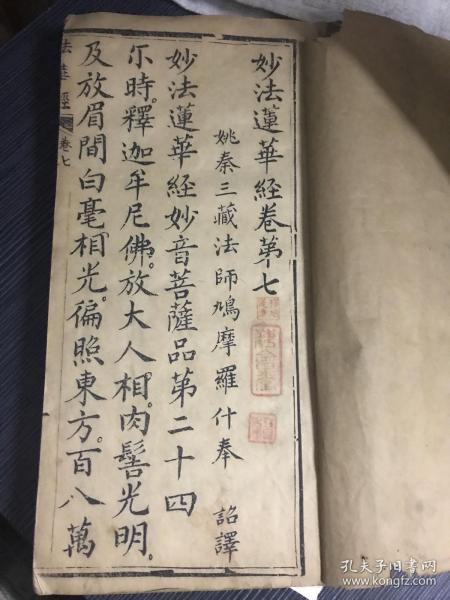 妙法蓮華經卷第七
姚秦三藏法師鳩摩羅什奉 詔譯
妙法蓮華經妙音菩薩品第二十四
尓時。釋迦牟尼佛。放大人相。肉髻光明。
及放眉間白毫相光。徧照東方。百八萬
法華經 卷七
孔夫子旧书网
www.kongfz.com